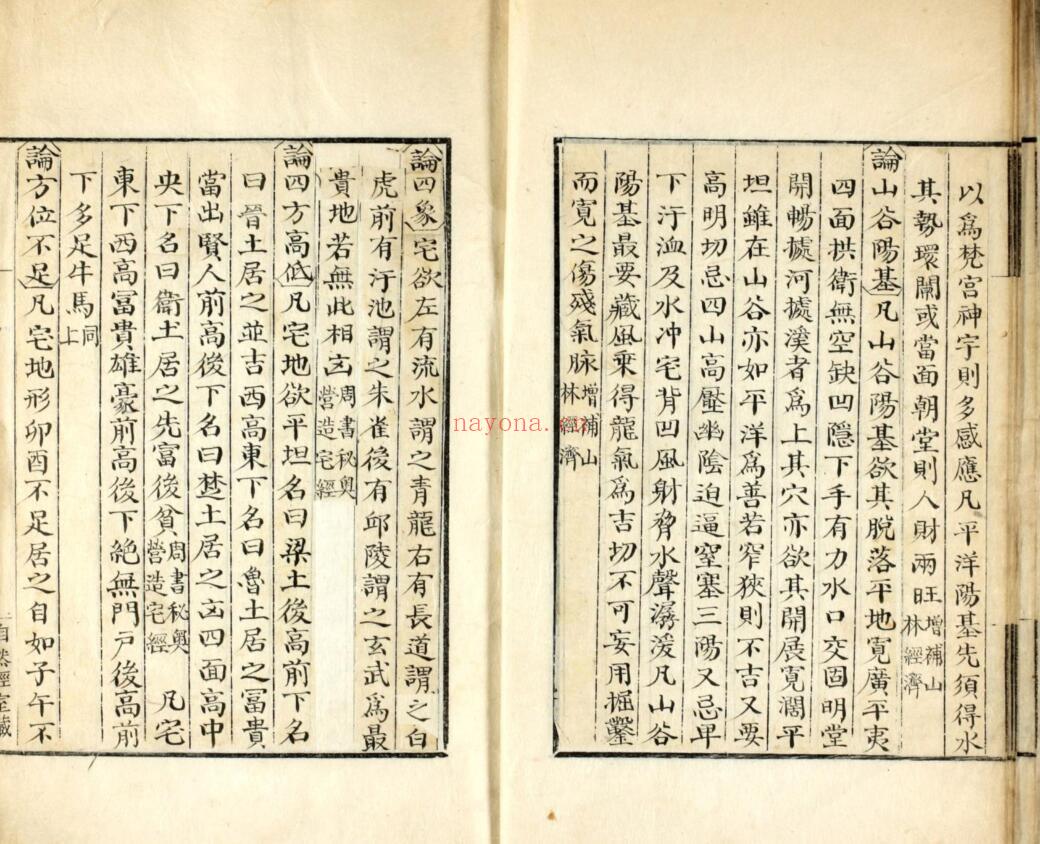 以爲梵宮神宇則多感應凡平洋陽基先須得水
其勢環闌或當面朝堂則人財兩旺增補山林經濟
論山谷陽基凡山谷陽基欲其脫落平地寬廣平夷
四面拱衛無空缺凹隱下手有力水口交固明堂
開暢㨿河㨿溪者爲上其穴亦欲其開展寬濶平
坦雖在山谷亦如平洋爲善若窄狹則不吉又要
高明切忌四山高壓幽陰迫逼窒塞三陽又忌卑
下汙洫及水冲宅背凹風射脅水聲潺湲凡山谷
陽基最要藏風乘得龍氣爲吉切不可妄用掘鑿
而寬之傷殘氣脉增補山林經濟
論四象宅欲左有流水謂之青龍右有長道謂之白
虎前有汙池謂之朱雀後有邱陵謂之玄武爲最
貴地若無此相凶周書秘奧營造宅經
論四方高低凡宅地欲平坦名曰梁土後高前下名
曰晉土居之並吉西高東下名曰魯土居之富貴
當出賢人前高後下名曰楚土居之凶四面高中
央下名曰衛土居之先富後貧周書秘奧營造宅經 凡宅
東下西高富貴雄豪前高後下絶無門戸後高前
下多足牛馬同上
論方位不足凡宅地形卯酉不足居之自如子午不
自然經室藏
nayona.cn